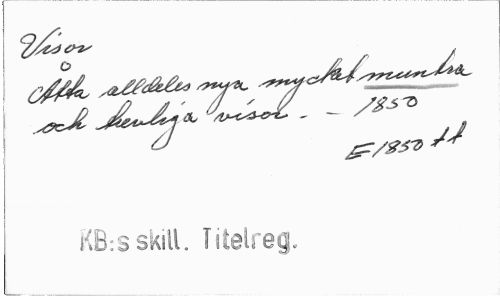 Visor
Åtta alldeles nya mycket muntra
och trevliga visor. – 1850
E 1850 tt
KB:s skill. Titelreg.